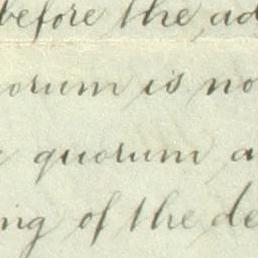 before the ad
orum is no
quorum a
ng of the de